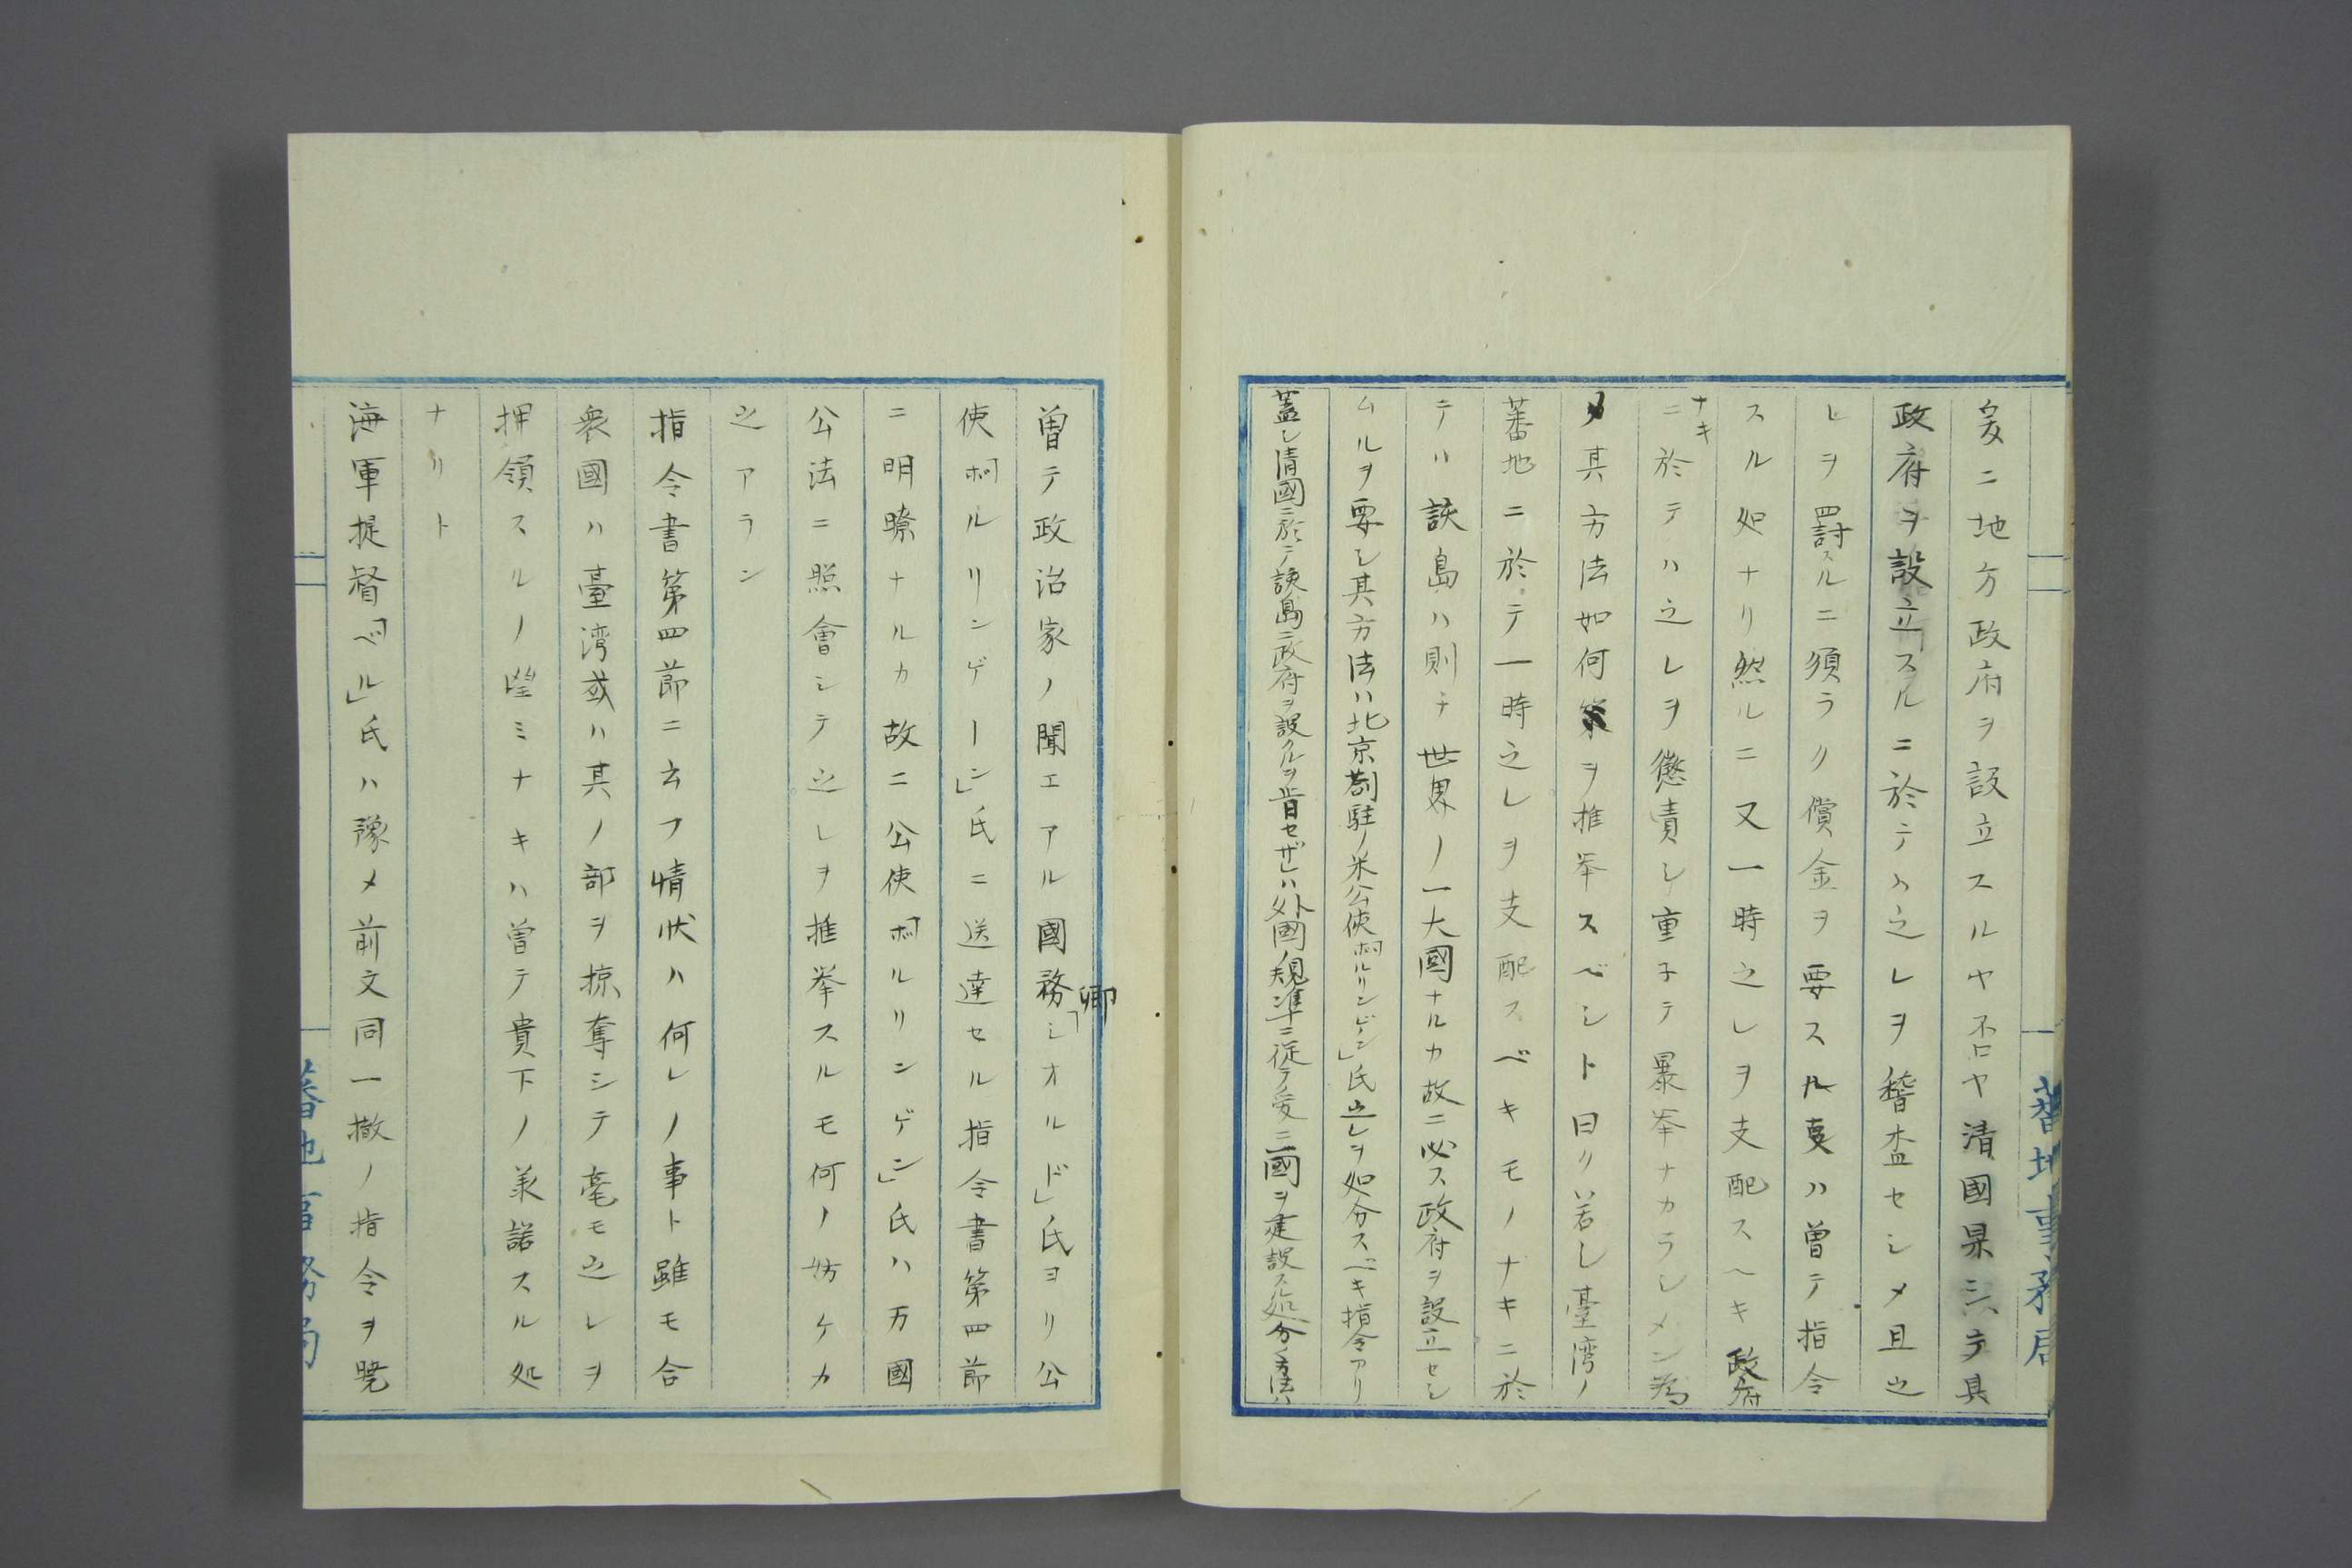 爰ニ地方政府ヲ設立スルヤ否ヤ清國果シテ其
政府ヲ設立スルニ於テハ之レヲ稽査セシメ且之
レヲ罰スルニ須ラク償金ヲ要スル事ハ曽テ指令
スル処ナリ然ルニ又一時之レヲ支配スヘキ政府
ナキ
ニ於テハ之レヲ懲責シ重子テ暴挙ナカラシメン為
メ其方法如何ヲ推挙スベシト曰ク若シ臺湾ノ
蕃地ニ於テ一時之レヲ支配スベキモノナキニ於
テハ該島ハ則チ世界ノ一大國ナルカ故ニ必ス政府ヲ設立セシ
ムルヲ要シ其方法ハ北京駐箚ノ米公使「ボルリンゲン」氏之レヲ処分スベキ指令アリ
蓋シ清國ニ於テ該島ニ政府ヲ設クルヲ肯セザレハ外國ノ規準ニ従テ爰ニ國ヲ建設スル処分ノ方法ハ
蕃地事務局
曽テ政治家ノ聞エアル國務卿「シオルド」氏ヨリ公
使「ボルリンゲーン」氏ニ送達セル指令書第四節
ニ明瞭ナルカ故ニ公使「ボルリンゲン」氏ハ万國
公法ニ照會シテ之レヲ推挙スルモ何ノ妨ケカ
之アラン
指令書第四節ニ云フ情状ハ何レノ事ト雖モ合
衆國ハ臺湾或ハ其ノ部ヲ掠奪シテ毫モ之レヲ
押領スルノ望ミナキハ曽テ貴下ノ羕諾スル処
ナリト
海軍提督「ベル」氏ハ豫メ前文同一撤ノ指令ヲ暁
蕃地事務局